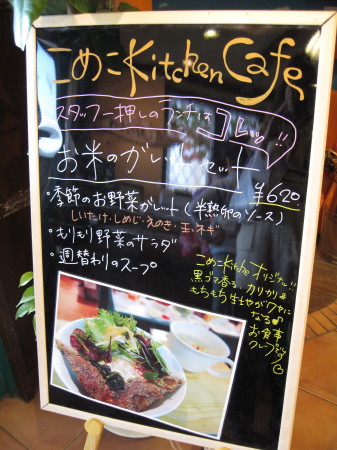 こめこKitchen Cafe
スタッフ一押しのランチは
コレッ!!
お米のガレットセット
¥620
・季節のお野菜ガレット(半熟卵のソース)
しいたけ・しめじ・えのき・玉ネギ
・もりもり野菜のサラダ
・週替わりのスープ
こめこKitchenオリジナル!!
黒ゴマ香る・カリカリ
もちもち生地がクセに
なる♪
お食事
クレープです